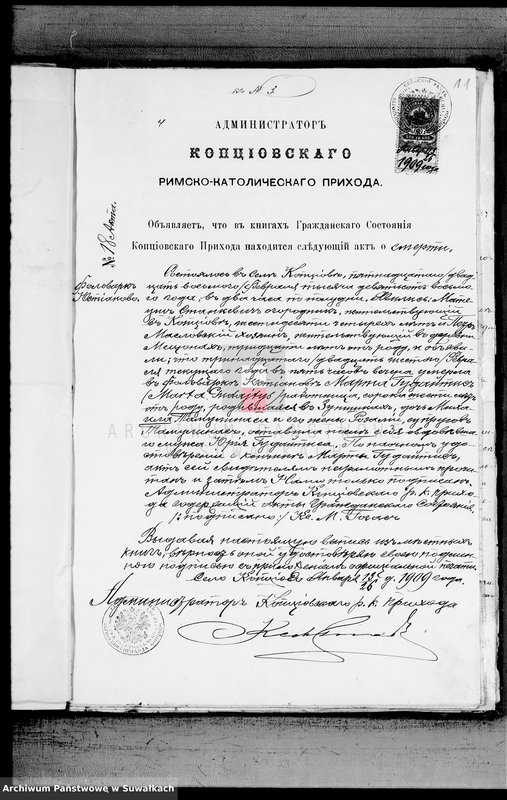 къ № 3.
11
4
АДМИНИСТРАТОРЪ
КОПЦІОВСКАГО
РИМСКО-КАТОЛИЧЕСКАГО ПРИХОДА.
1909 года
№ 18 Акта.
Объявляетъ, что въ книгахъ Гражданскаго Состоянія
Копціовскаго Прихода находится слѣдующій актъ о смерти,
Фольваркъ
Состоялось въ селѣ Копціовѣ, пятнадцатаго /двад
цать восьмого/ Февраля тысяча девятьсотъ восьмо
го года, въ два часа по полудни. Явились: Мате
ушъ Станкевичъ огородникъ, жительствующій
въ Копціовѣ, шестидесяти четырехъ лѣтъ и
Масловскій жительствующій въ деревнѣ
тридцати лѣтъ отъ роду, и объяви
ли, что тринадцатаго /двадцать шестого/ Февра
ля текущаго года въ пять часовъ вечера умерла
въ фольваркѣ Марта Гудайтисъ
/Marta Gudajtys/ работница, сорока шести лѣтъ
отъ роду, родившаяся въ дочь Миха
и его жены Розаліи, супруговъ
оставивъ послѣ себя овдовѣвша
го мужа Юрія Гудайтиса. По наочномъ удо
стовѣреніи о кончинѣ Марты Гудайтисъ,
актъ сей свидѣтелямъ неграмотнымъ прочи
танъ и затѣмъ Нами только подписанъ.
Администраторъ Копціовскаго р. к. прихо
да содержащій акты Гражданскаго Состоянія
/подписано:/ Кс. М.
Выдавая настоящую выпись изъ метрическихъ
книгъ, вѣрность оной удостовѣряю своею подпи
сью съ приложеніемъ оффиціальной печати.
Село Копціово Января 13/26 д. 1909 года.
Администраторъ Копціовскаго р. к. прихода
Archiwum Państwowe w Suwałkach